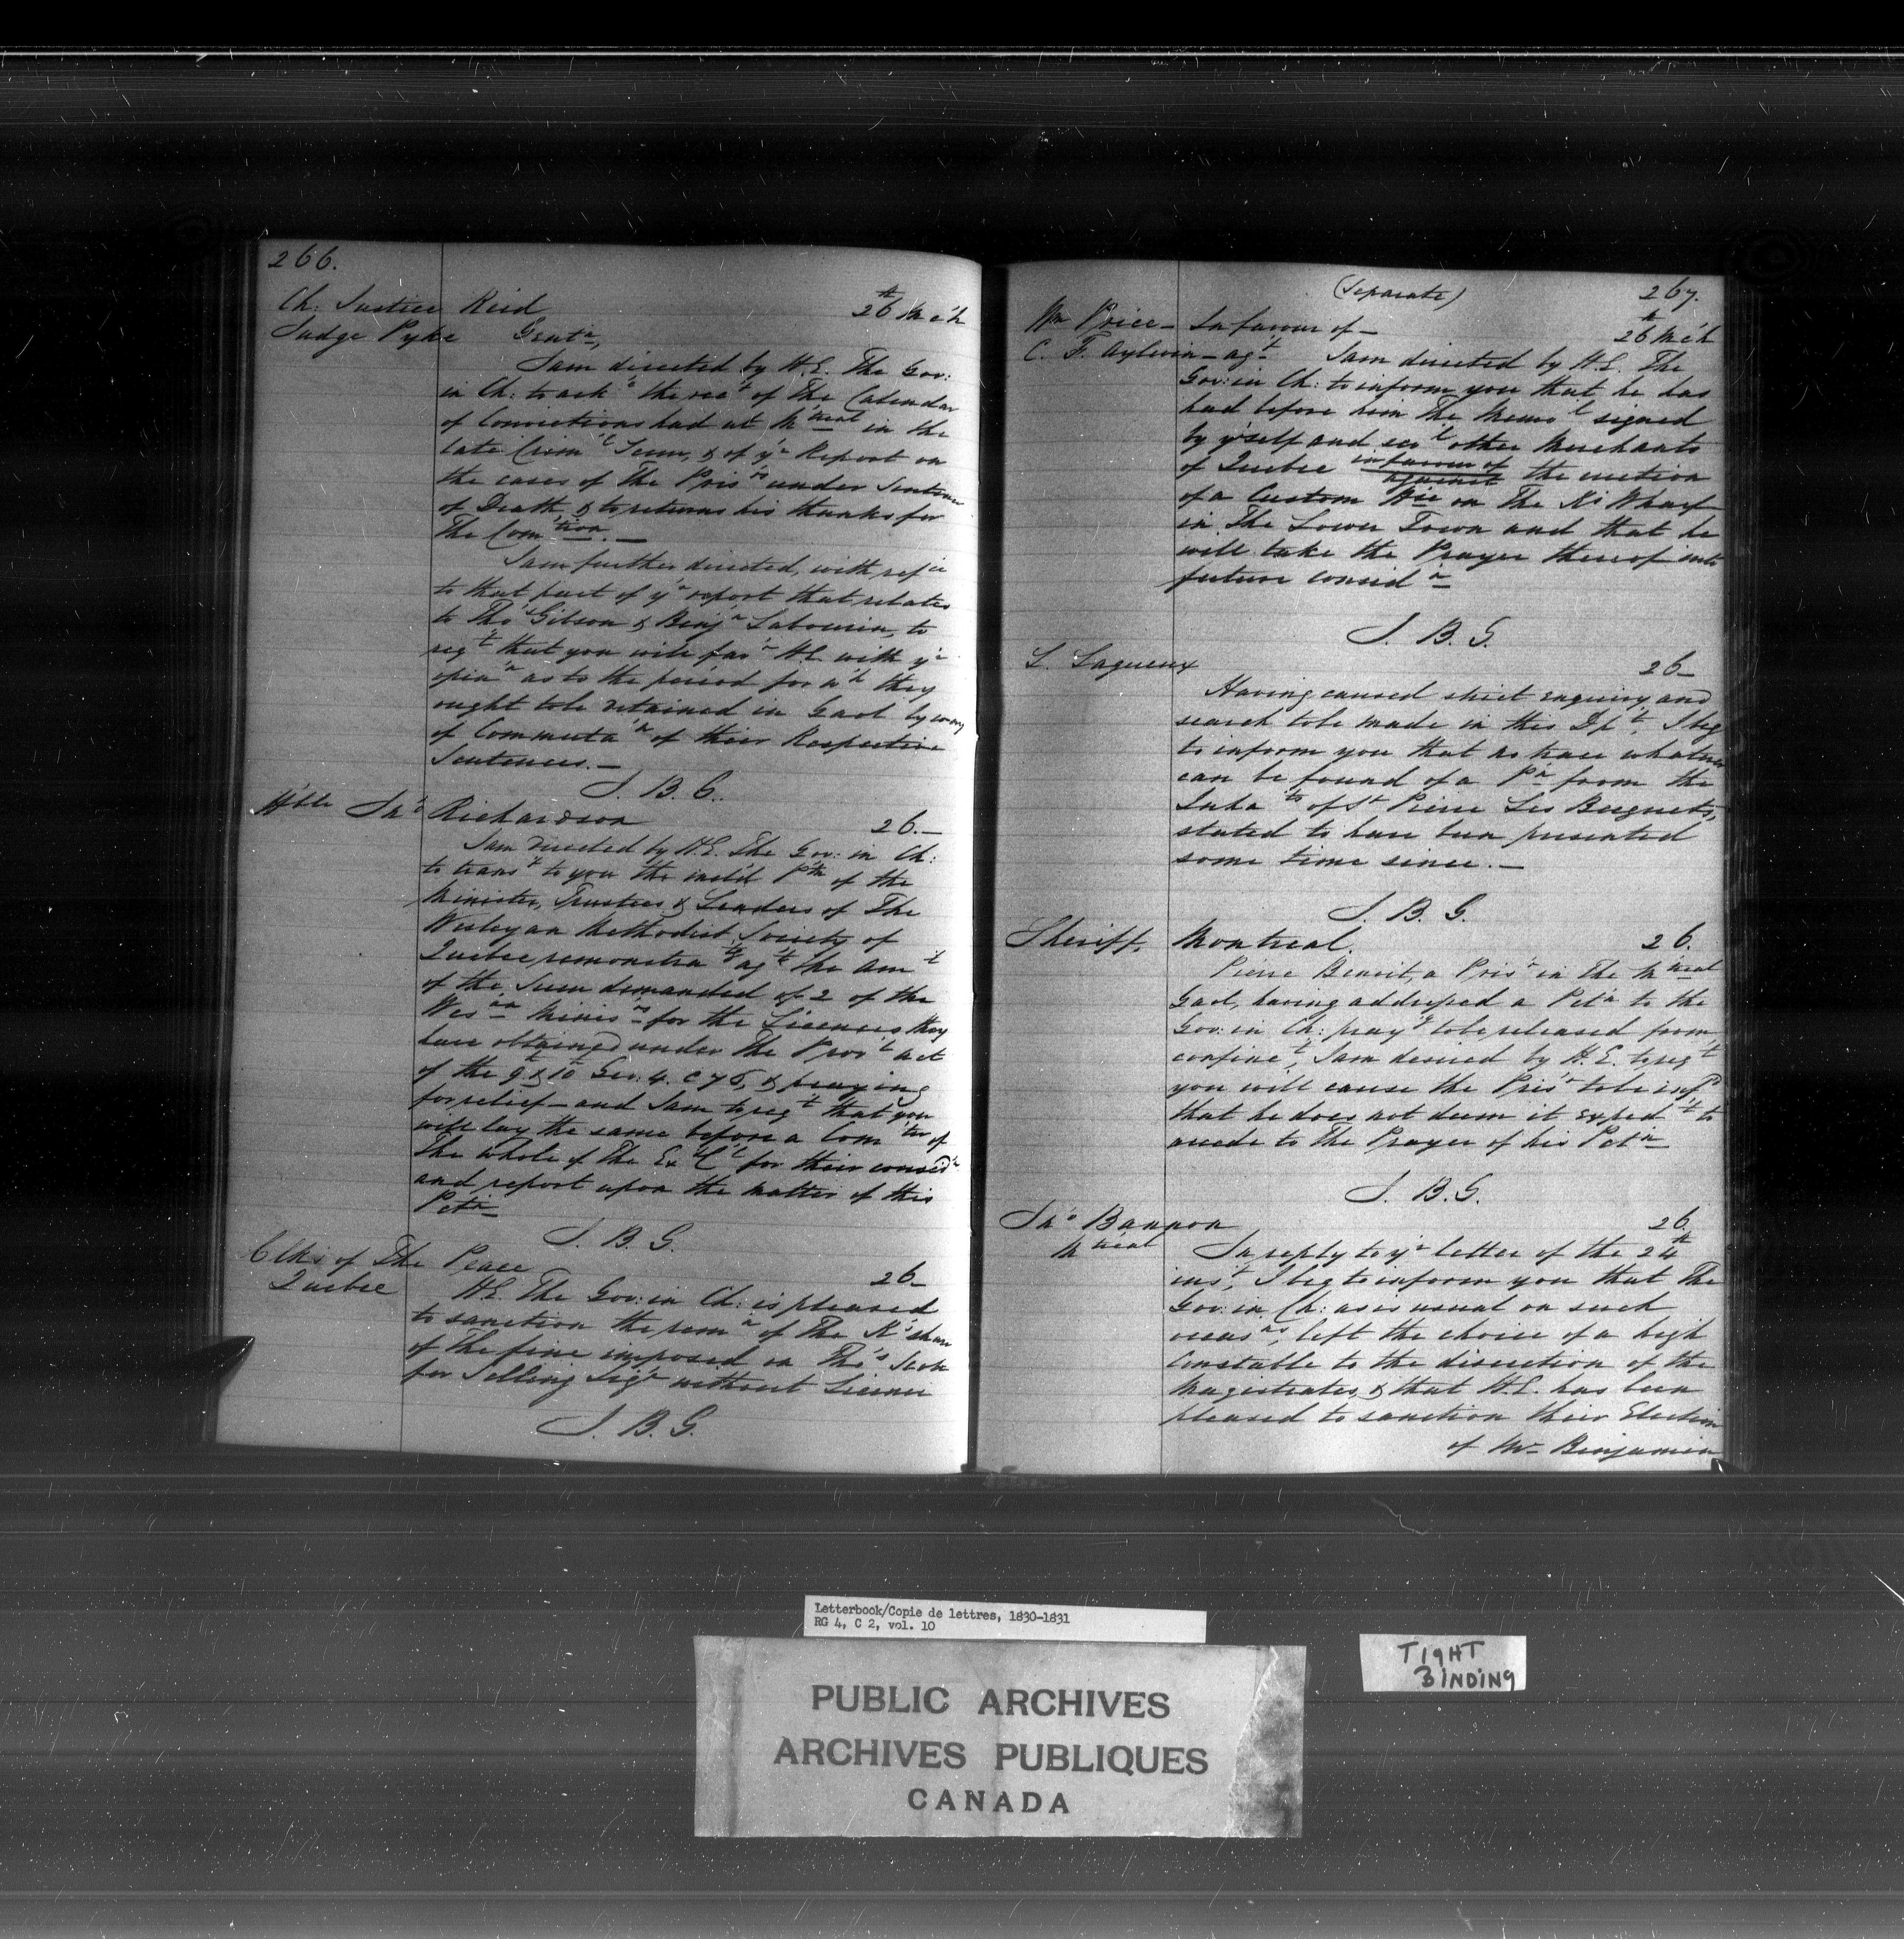 266.
Ch: Justice Reid 26th Mch
Judge Pyke Gentn,
I am directed by H.E. The Gov:
in Ch: to acke the rect of The Calendar
of Convictions had at M'treal in the
late Criml Term, & of yr Report on
the cases of The Prisrs under Sentence
of Death & to return his thanks for
The Com'tion. —
I am further directed, with refce
to that part of yr report that relates
to Thos Gibson & Benjn Labourin, to
reqt that you will favr H.E. with yr
opinn as to the period for wh they
ought to be detained in Gaol by way
of Commutan of their Respective
Sentences. —
J. B. G.
Hble Jno Richardson 26. —
I am directed by H.E. The Gov: in Ch:
to transt to you the incl'd P'tn of the
Minister, Trustees & Leaders of The
Wesleyan Methodist Society of
Quebec, remonstratg agst the Amt
of the Sum demanded of 2 of the
Wesan Minisrs for the Licences they
have obtained under The Provl act
of the 9th & 10th Geo: 4. C 76, & praying
for relief — and I am to reqt that you
will lay the same before a Com'tee of
The Whole of The Ex C'l for their consid'n
and report upon the matter of this
Pet'n
J. B. G.
Clks of The Peace 26 —
Quebec H.E. The Gov: in Ch: is pleased
to sanction the remn of The K's share
of the fine imposed on Thos Scott
for Selling Liqr without Licence
J. B. G.
(Separate) 267.
Wm Price — In favour of — 26th Mch
C. F. Aylwin — agt I am directed by H.E. The
Gov: in Ch: to inform you that he has
had before him The Memol signed
by y'self and sevl other Merchants
of Quebec in favour of the erection
against
of a Custom Hse on The K's Wharf
in The Lower Town and that he
will take the Prayer thereof into
future considn
J. B. G.
L. Lagueux 26 —
Having caused strict enquiry and
search to be made in this Dpt, I beg
to inform you that no trace whatever
can be found of a P'n from the
Inhats of St Pierre Les Becquets,
stated to have been presented
some time since. —
J. B. G.
Sheriff, Montreal. 26.
Pierre Benoit, a Prisr in The M'treal
Gaol, having addressed a Pet'n to the
Gov: in Ch: prayg to be released from
confinet, I am desired by H.E. to reqt
you will cause the Prisr to be infd
that he does not deem it expedt to
accede to The Prayer of his Pet'n
J. B. G.
Jno Bannon 26.
M'treal In reply to yr letter of the 24th
inst, I beg to inform you that The
Gov: in Ch: as is usual on such
occasns, left the choice of a high
Constable to the discretion of the
Magistrates, & that H.E. has been
pleased to sanction their Election
of Mr Benjamin
Letterbook/Copie de lettres, 1830-1831
RG 4, C 2, vol. 10
PUBLIC ARCHIVES
ARCHIVES PUBLIQUES
CANADA
TIGHT
BINDING